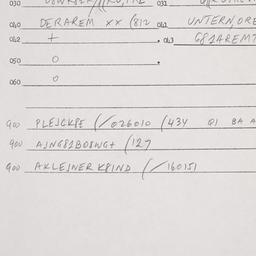 030 031
040 DERAREM xx (812 041 UNTERN, ORE
042 + . 043 G81AREMT
050 0 .
060 0
900 PLEJCKPE (/026010 /434 Q1 BA A
900 AJNG81BOJWG+ (127
900 AKLEJNER KPIND (/160151